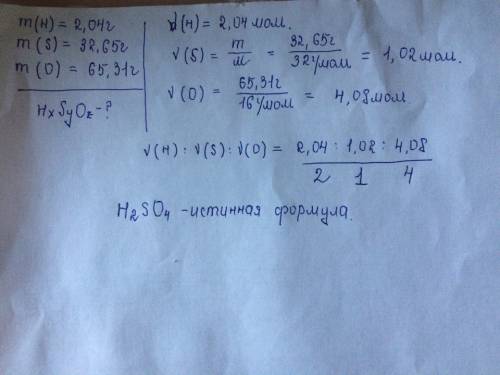 m(H) = 2,04г
m(S) = 32,65г
m(O) = 65,31г
HxSyOz-?
ν(H) = 2,04 мол.
ν(S) = m/M = 32,65г/32г/мол = 1,02 мол.
ν(O) = 65,31г/16г/мол = 4,08 мол
ν(H) : ν(S) : ν(O) = 2,04 : 1,02 : 4,08
2 1 4
H₂SO₄ - истинная формула.